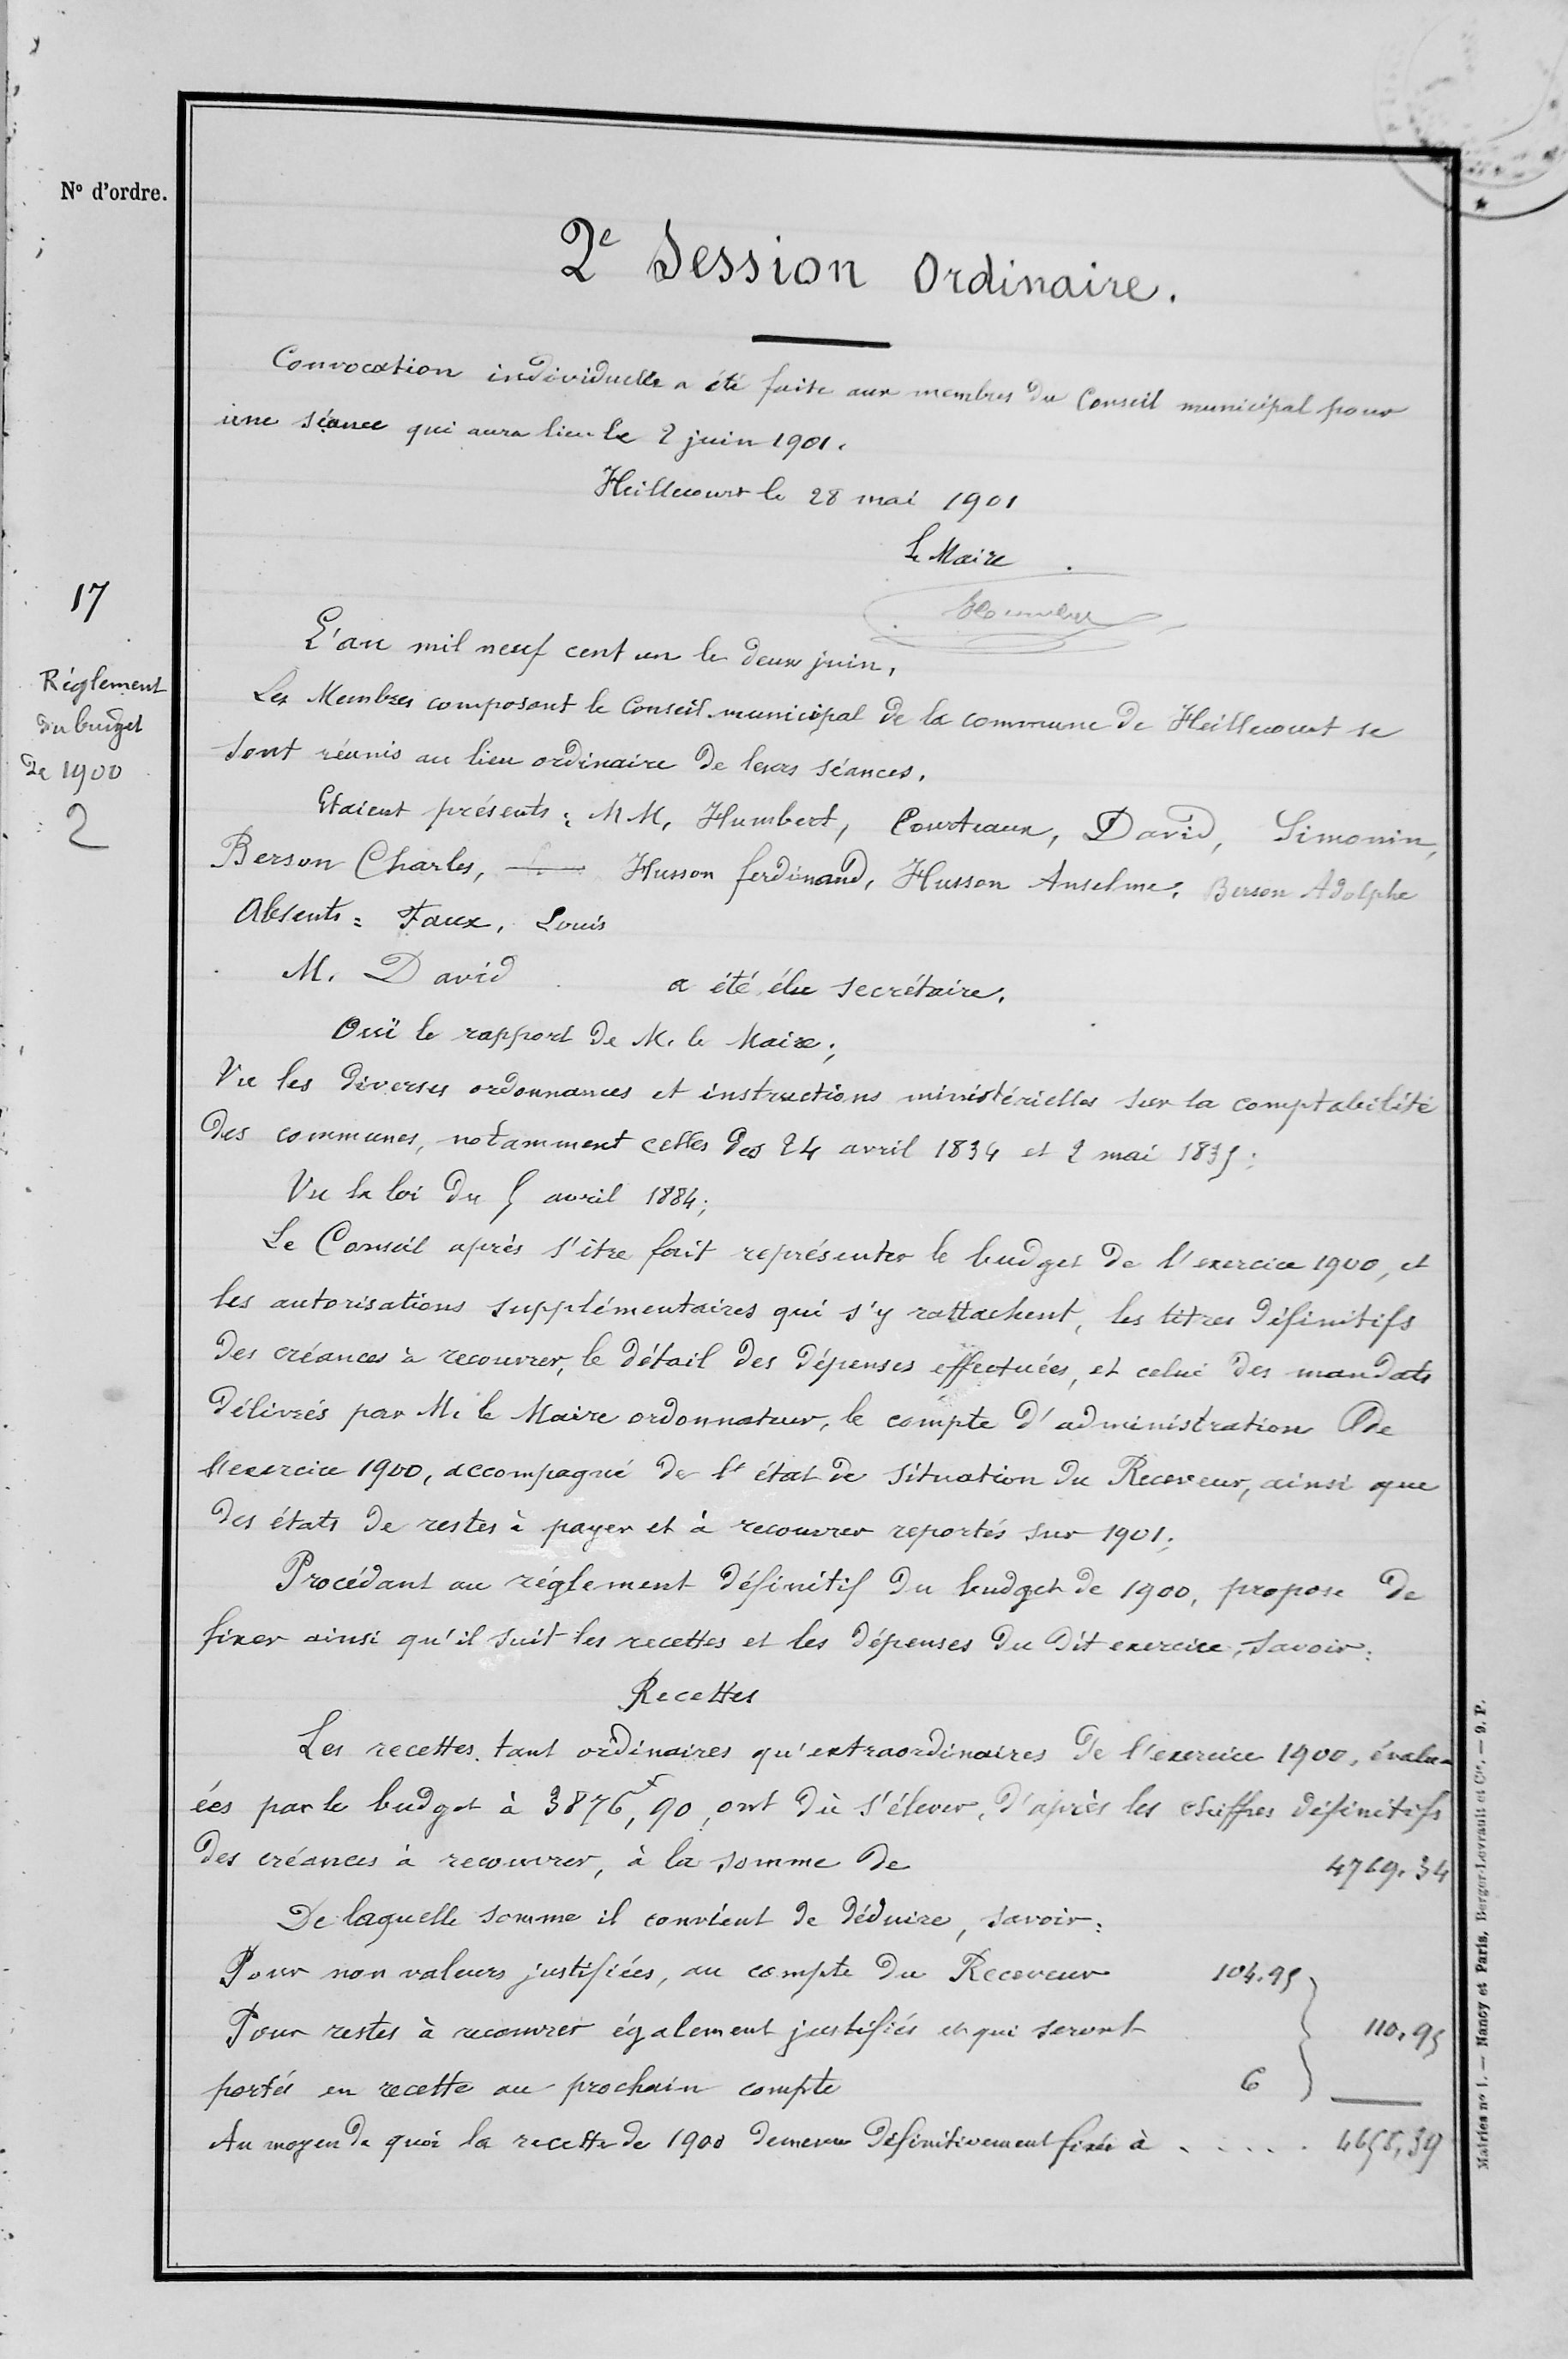 N° d'ordre.
2e Session Ordinaire.
Convocation individuelle a été faite aux membres du Conseil municipal pour
une séance qui aura lieu le 2 juin 1901.
Heillecourt le 28 mai 1901
Le Maire
Humbert
17
Règlement
du budget
de 1900
2
L'an mil neuf cent un le deux juin,
Les Membres composant le Conseil municipal de la commune de Heillecourt se
sont réunis au lieu ordinaire de leurs séances.
Etaient présents : MM. Humbert, Courteaux, David, Simonin,
Berson Charles, Husson ferdinand, Husson Anselme, Berson Adolphe
Absents : Faux, Louis
M. David a été élu secrétaire.
Ouï le rapport de M. le Maire ;
Vu les diverses ordonnances et instructions ministérielles sur la comptabilité
des communes, notamment celles des 24 avril 1834 et 2 mai 1835 ;
Vu la loi du 5 avril 1884 ;
Le Conseil après s'être fait représenter le budget de l'exercice 1900, et
les autorisations supplémentaires qui s'y rattachent, les titres définitifs
des créances à recouvrer, le détail des dépenses effectuées, et celui des mandats
délivrés par M. le Maire ordonnateur, le compte d'administration de
l'exercice 1900, accompagné de l'état de situation du Receveur, ainsi que
des états de restes à payer et à recouvrer reportés sur 1901 ;
Procédant au règlement définitif du budget de 1900, propose de
fixer ainsi qu'il suit les recettes et les dépenses du dit exercice, savoir :
Recettes
Les recettes tant ordinaires qu'extraordinaires de l'exercice 1900, évalu-
ées par le budget à 3876f,90, ont dû s'élever, d'après les chiffres définitifs
des créances à recouvrer, à la somme de 4769.34
De laquelle somme il convient de déduire, savoir :
Pour non valeurs justifiées, au compte du Receveur 104.95
Pour restes à recouvrer également justifiés et qui seront 110.95
portés en recette au prochain compte 6
Au moyen de quoi la recette de 1900 demeure définitivement fixée à . . . . . 4658,39
Mairies n° 1. — Nancy et Paris, Berger-Levrault et Cie. — 9. P.